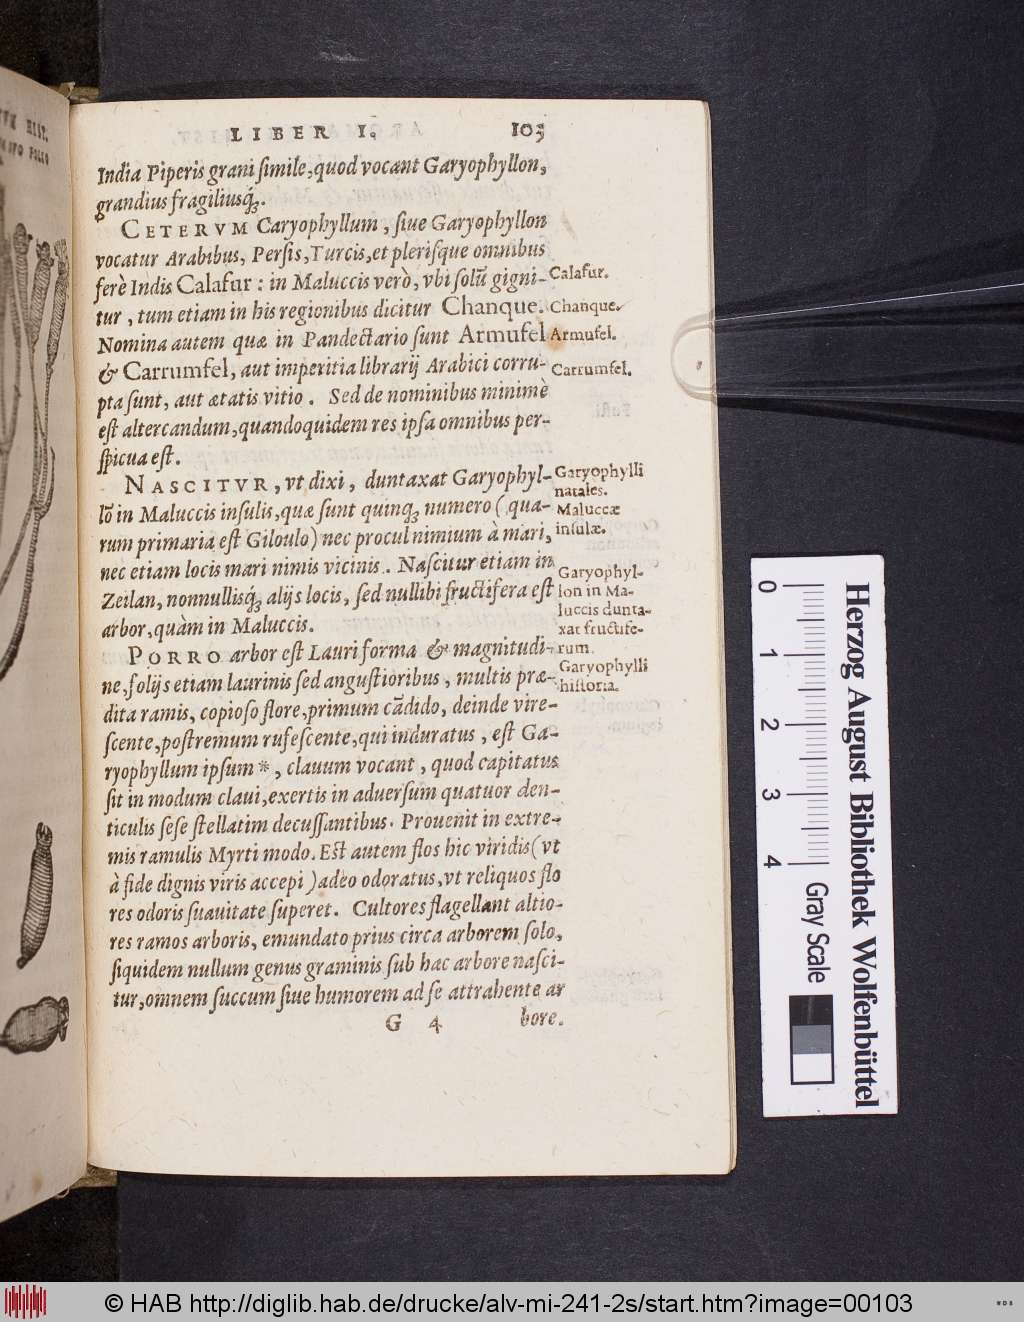 LIBER I. 103
India Piperis grani ſimile,quod vocant Garyophyllon,
grandius fragiliusq́ꝫ.
CETERVM Caryophyllum, ſiue Garyophyllon
vocatur Arabibus, Perſis,Turcis,et pleriſque omnibus
ferè Indis Calafur: in Maluccis verò, vbi ſolũ gigni-
tur, tum etiam in his regionibus dicitur Chanque.
Nomina autem quæ in Pandectario ſunt Armufel
& Carrumfel, aut imperitia librarij Arabici corru-
pta ſunt, aut ætatis vitio. Sed de nominibus minimè
eſt altercandum,quandoquidem res ipſa omnibus per-
ſpicua eſt.
NASCITVR, vt dixi, duntaxat Garyophyl-
lō in Maluccis inſulis,quæ ſunt quinqꝫ numero (qua-
rum primaria eſt Giloulo) nec procul nimium à mari,
nec etiam locis mari nimis vicinis. Naſcitur etiam in
Zeilan, nonnullisq́ꝫ alijs locis, ſed nullibi fructifera eſt
arbor,quàm in Maluccis.
PORRO arbor eſt Lauri forma & magnitudi-
ne,folijs etiam laurinis ſed anguſtioribus, multis præ-
dita ramis, copioſo flore,primum cãdido, deinde vire-
ſcente,poſtremum rufeſcente,qui induratus, eſt Ga-
ryophyllum ipſum *, clauum vocant, quod capitatus
ſit in modum claui,exertis in aduerſum quatuor den-
ticulis ſeſe ſtellatim decuſſantibus. Prouenit in extre-
mis ramulis Myrti modo. Eſt autem flos hic viridis (vt
à fide dignis viris accepi) adeo odoratus,vt reliquos flo
res odoris ſuauitate ſuperet. Cultores flagellant altio-
res ramos arboris, emundato prius circa arborem ſolo,
ſiquidem nullum genus graminis ſub hac arbore naſci-
tur,omnem ſuccum ſiue humorem ad ſe attrahente ar
G 4 bore.
Calafur.
Chanque.
Armufel.
Carrumfel.
Garyophylli
natales.
Maluccæ
inſulæ.
Garyophyl-
lon in Ma-
luccis dunta-
xat fructife-
rum.
Garyophylli
hiſtoria.
0 1 2 3 4
Gray Scale
Herzog August Bibliothek Wolfenbüttel
© HAB http://diglib.hab.de/drucke/alv-mi-241-2s/start.htm?image=00103